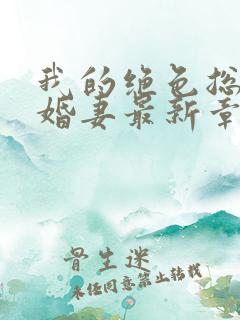 我的绝色总
婚妻最新章
骨生迷
未经同意禁止转载